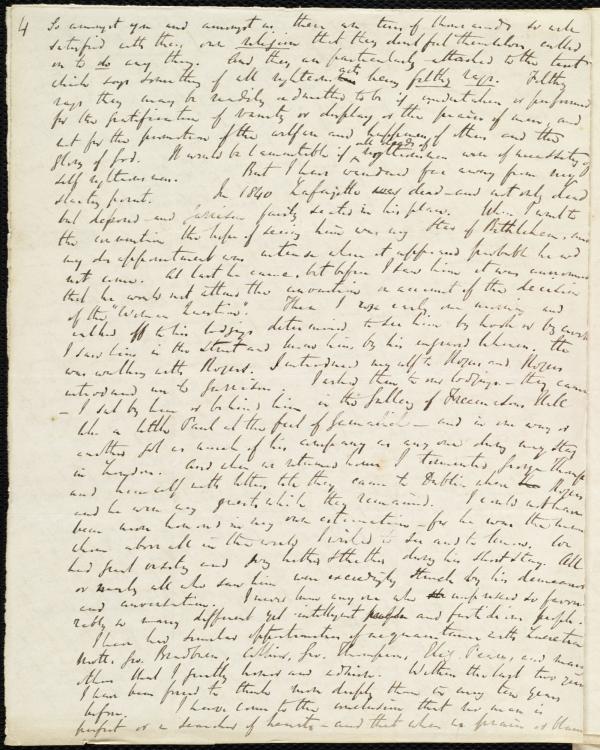 4
So amongst you and amongst us there are tens of thousands so self
satisfied with their own religion that they don't feel themselves called
on to do any thing. And they are particularly attached to the text
which says something of all righteous acts being filthy rags. Filthy
rags they may be readily admitted to be if undertaken or performed
for the gratification of vanity or display or the praise of men, and
not for the promotion of the welfare and happiness of others and the
glory of God. It would be lamentable if all deeds of righteousness were of necessity
self righteousness. But I have wandered far away from my
starting point. In 1840 Lafayette was dead - and not only dead
but deposed - and Garrison fairly seated in his place. When I went to
the convention the hope of seeing him was my Star of Bethlehem, and
my disappointment was intense when it appeared probable he wd
not come. At last he came, but before I saw him it was announced
that he would not attend the convention on account of the decision
of the "Woman Question". Then I rose early one morning and
walked off to his lodgings determined to see him by hook or by crook
I saw him in the street and knew him by his engraved likeness. He
was walking with Rogers. I introduced myself to Rogers and Rogers
introduced me to Garrison. I asked them to our lodgings - they came
- I sat by him or behind him in the gallery of Freemasons Hall
like a little Paul at the feet of Gamaliel - and in one way or
another got as much of his company as any one during my stay
in London. And when we returned home I tormented George Thompson
and himself with letters till they came to Dublin when Rogers
and he were my guests while they remained. I could not have
been more honored in my own estimation - for he was the man
whom above all in the world I wished to see and to know. We
had great variety and very little during his short stay. All
or nearly all who saw him were exceedingly struck by his demeanor
and conversation. I never knew any one who impressed so favor
rably so many different yet intelligent and fastidious people.
I have had similar opportunities of acquaintance with Lucretia
Mott, Geo. Bradburn, Collins, Geo. Thompson, Eliz. Pease, and many
others that I greatly honor and admire. Within the last two years
I have been forced to think more deeply than in many ten years
before. I have come to the conclusion that no man is
perfect or a searcher of hearts - and that when we praise or blame